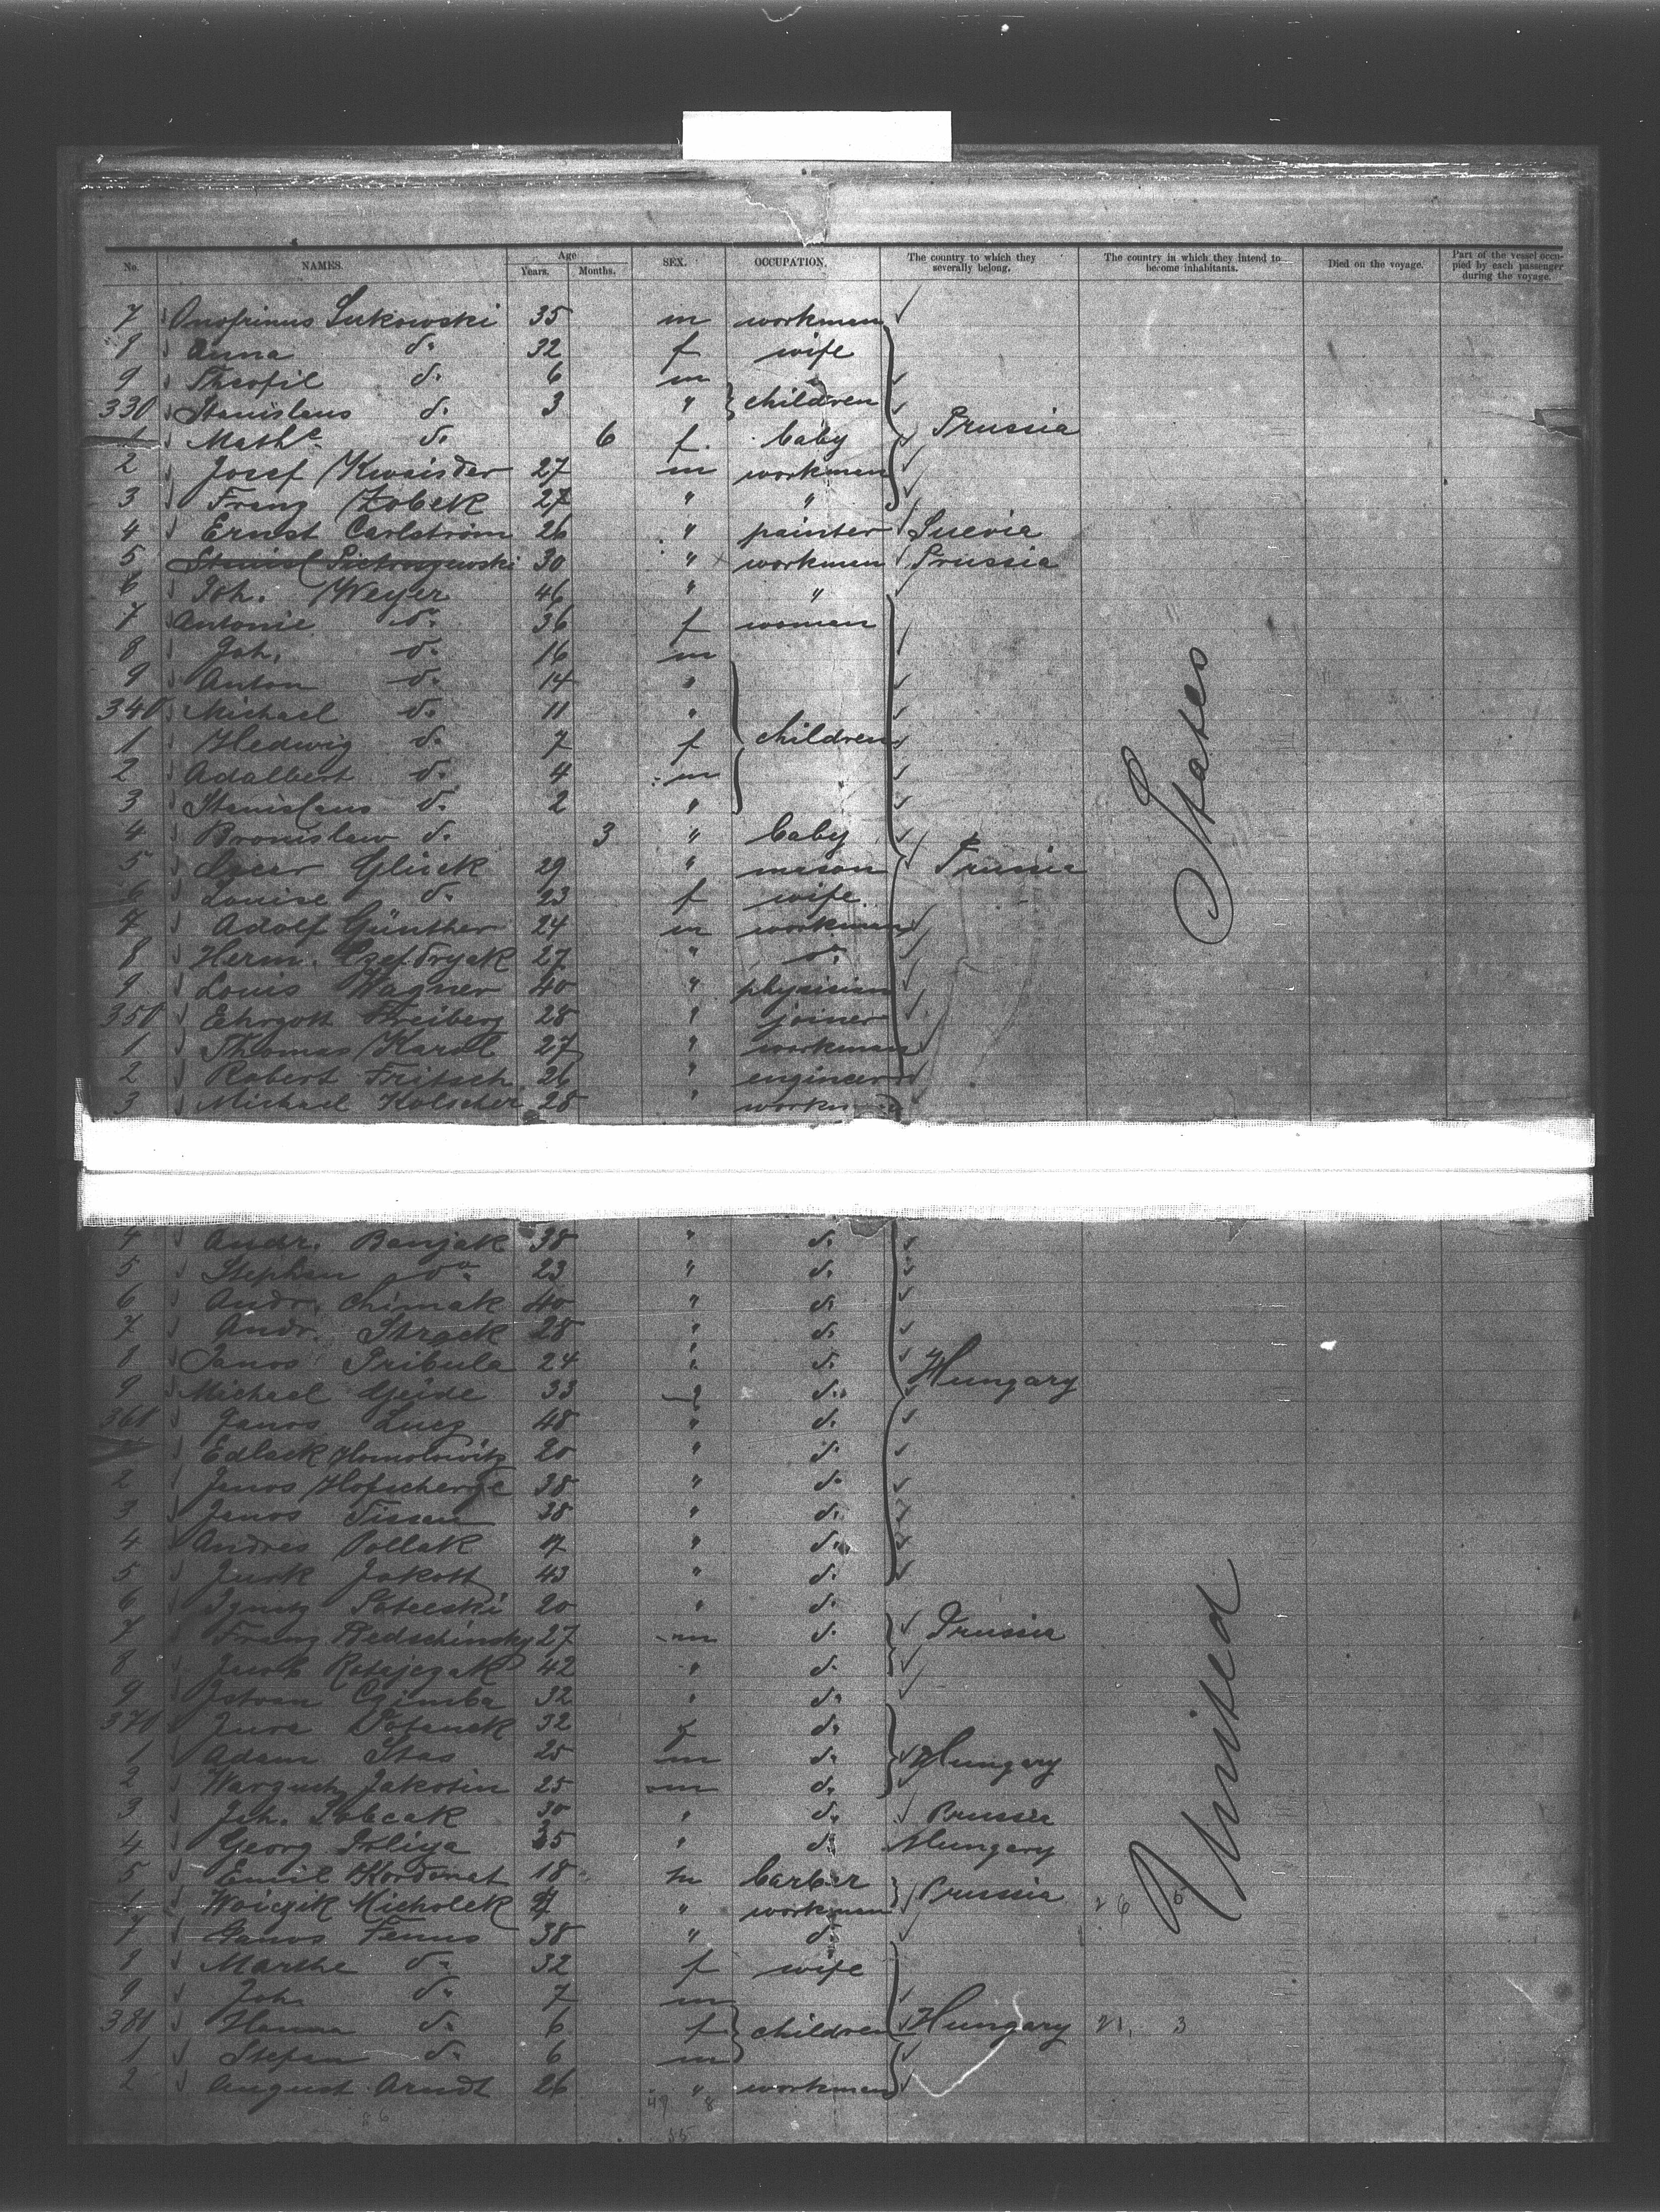 No. NAMES. Age Years. Months. SEX. OCCUPATION. The country to which they severally belong. The country in which they intend to become inhabitants. Died on the voyage. Part of the vessel occupied by each passenger during the voyage.
7 Onofrinus Lukowski 35 m workman
8 Anna do. 32 f wife
9 Theofil do. 6 m
330 Stanislaus do. 3 " children
1 Mathe do. 6 f. baby Prussia
2 Josef Kweisder 27 m workman
3 Franz Zobek 27 " "
4 Ernst Carlström 26 " painter Suevia
5 Pietroszewski 30 " workman Prussia
6 Joh. Weyer 46 " "
7 Antonie do. 36 f woman
8 Joh. do. 16 m
9 Anton do. 14 "
340 Michael do. 11 "
1 Hedwig do. 7 f children
2 Adalbert do. 4 m
3 Stanislaus do. 2 "
4 Bronislaw do. 3 " baby
5 Glück 29 " mason Prussia
6 Louise do. 23 f wife
7 Adolf Günther 24 m workman
8 Herm. 27 " do.
9 Louis Wagner 40 " physician
350 Ehrgott Freiberg 28 " joiner
1 Thomas Karol 27 " workman
2 Robert Fritsch 26 " engineer
3 Michael Kolscher 28 "
4 Andr. Banjak 38 " do.
5 Stephan do. 23 " do.
6 Andr. Chimak 40 " do.
7 Andr. 28 " do.
8 Janos Pribula 24 " do.
9 Michael Geide 33 do. Hungary
360 Janos Lucz 48 " do.
Edlack Homolowitz 20 " do.
2 Janos 38 " do.
3 Janos Tissan 38 " do.
4 Andres Pollak " do.
5 Jurk Jakott 43 " do.
6 20 " do.
7 Franz Redschinsky 27 m do. Prussia
8 Jacob Ratajczak 42 " do.
9 Istvan Czimba 32 " do.
370 Jura 32 f do.
1 Adam Stas 25 m do. Hungary
2 Jakobin 25 m do.
3 Joh. 30 " do. Prussia
4 Georg 35 " do. Hungary
5 Emil Kordonat 18 m barber
6 Woiczik Micholek " workman Prussia 26
7 Janos Fenns 38 " do.
8 Marthe do. 32 f wife
9 Joh. do. 7 m
380 Hanna do. 6 f children Hungary 21, 3
1 Stefan do. 6 m
2 August Arndt 26 " workman
49 8
86
United States